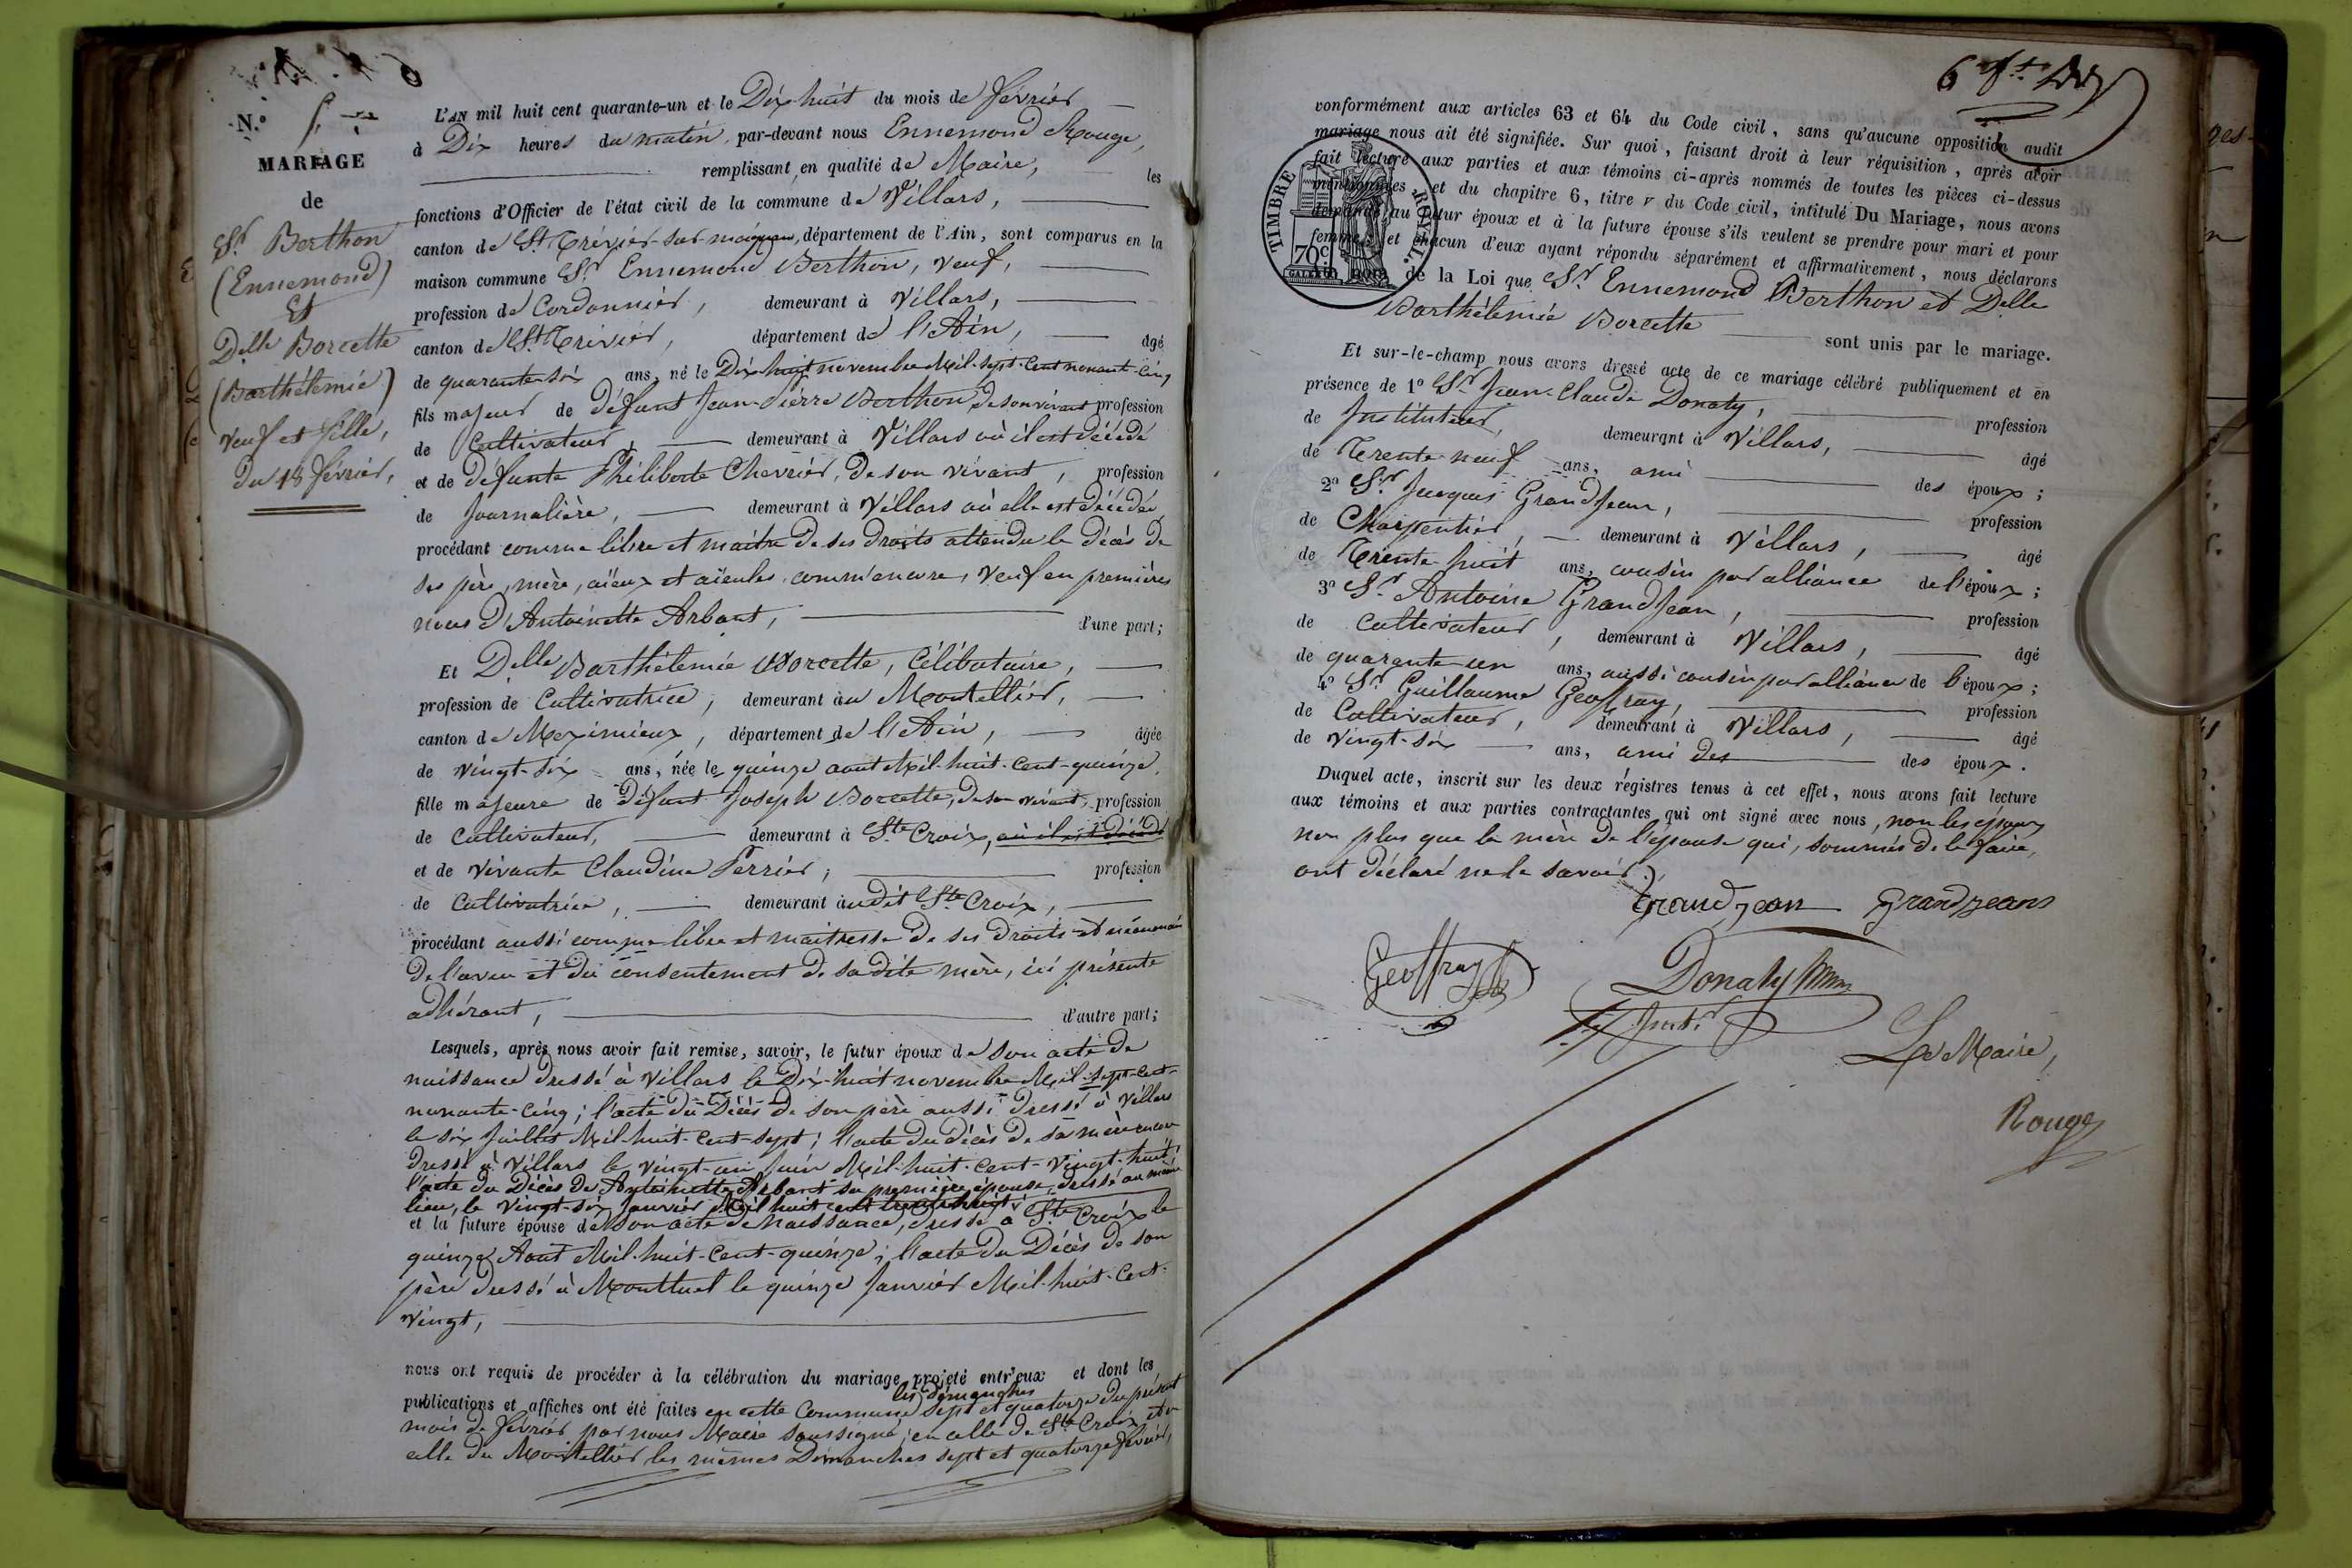 N.° 5
MARIAGE
de
Sr Berthon
(Ennemond)
Et
Delle Borcette
(Barthélemie)
veuf et fille,
du 18 février,
L'AN mil huit cent quarante-un et le Dix-huit du mois de février
à Dix heures du matin, par-devant nous Ennemond Rouge,
remplissant, en qualité de Maire, les
fonctions d'Officier de l'état civil de la commune de Villars,
canton de St Trévier-sur-moignan, département de l'Ain, sont comparus en la
maison commune Sr. Ennemond Berthon, veuf,
profession de Cordonnier, demeurant à Villars,
canton de St Trivier, département de l'Ain, âgé
de quarante-six ans, né le Dix-huit novembre Mil-sept-cent-nonant-cinq
fils majeur de défunt Jean-Pierre Berthon de son vivant profession
de Cultivateur, demeurant à Villars où il est décédé
et de défunte Philiberte Chevrier, de son vivant, profession
de Journalière, demeurant à Villars où elle est décédée
procédant comme libre et maître de ses droits attendu le décès de
ses père, mère, aïeux et aïeules, comm'encore, veuf en premières
noces d'Antoinette Arbant, d'une part;
Et Delle Barthélemie Borcette, Célibataire,
profession de Cultivatrice, demeurant au Montellier,
canton de Meximieux, département de l'Ain, âgée
de vingt-six ans, née le quinze aout Mil-huit-cent-quinze,
fille majeure de défunt Joseph Borcette, de son vivant, profession
de cultivateur, demeurant à Ste Croix, où il est décédé
et de vivante Claudine Perrier, profession
de Cultivatrice, demeurant audit Ste Croix,
procédant aussi comme libre et maitresse de ses droits et néanmoin
de l'aveu et du consentement de sa dite mère, ici présente
adhérant, d'autre part;
Lesquels, après nous avoir fait remise, savoir, le futur époux de son acte de
naissance dressé à Villars le Dix-huit novembre Mil-sept-cent-
nonante-cinq; l'acte du Décès de son père aussi dressé à Villars
le six Juillet Mil-huit-cent-sept; l'acte du décès de sa mère encore
dressé à Villars le vingt-un Juin Mil-huit-cent-vingt-huit;
l'acte du Décès de Antoinette Arbant sa première épouse, dressé au même
lieu, le vingt-six Janvier Mil huit cent trente huit;
et la future épouse de son acte de Naissance, dressé à Ste Croix le
quinze Aout Mil-huit-Cent-quinze; l'acte du Décès de son
père dressé à Montluel le quinze Janvier Mil-huit-Cent-
vingt,
nous ont requis de procéder à la célébration du mariage projeté entr'eux et dont les
les dimanches
publications et affiches ont été faites en cette Commune sept et quatorze du présent
mois de février par nous Maire soussigné; en celle de Ste Croix et en
celle du Montellier les mêmes Dimanches sept et quatorze février,
conformément aux articles 63 et 64 du Code civil, sans qu'aucune opposition audit
mariage nous ait été signifiée. Sur quoi, faisant droit à leur réquisition, après avoir
fait lecture aux parties et aux témoins ci-après nommés de toutes les pièces ci-dessus
mentionnées et du chapitre 6, titre v du Code civil, intitulé Du Mariage, nous avons
demandé au futur époux et à la future épouse s'ils veulent se prendre pour mari et pour
femme; et chacun d'eux ayant répondu séparément et affirmativement, nous déclarons
au nom de la Loi que Sr. Ennemond Berthon et Delle
Barthélemie Borcette sont unis par le mariage.
TIMBRE ROYAL.
70c
Et sur-le-champ nous avons dressé acte de ce mariage célébré publiquement et en
présence de 1° Sr Jean-Claude Donaty, profession
de Instituteur, demeurant à Villars, âgé
de Trente-neuf ans, ami des époux;
2° Sr Jacques GrandJean, profession
de Charpentier, demeurant à Villars, âgé
de Trente huit ans, cousin par alliance de l'époux;
3° Sr Antoine GrandJean, profession
de Cultivateur, demeurant à Villars, âgé
de quarante-un ans, aussi cousin par alliance de l'époux;
4° Sr Guillaume Geoffray, profession
de Cultivateur, demeurant à Villars, âgé
de vingt-six ans, ami des des époux.
Duquel acte, inscrit sur les deux régistres tenus à cet effet, nous avons fait lecture
aux témoins et aux parties contractantes qui ont signé avec nous, non les époux
non plus que la mère de l'épouse qui, sommés de le faire,
ont déclaré ne le savoir.
Grandjean Grandjeans
Geoffray
Donaty
Instr
Le Maire,
Rouge